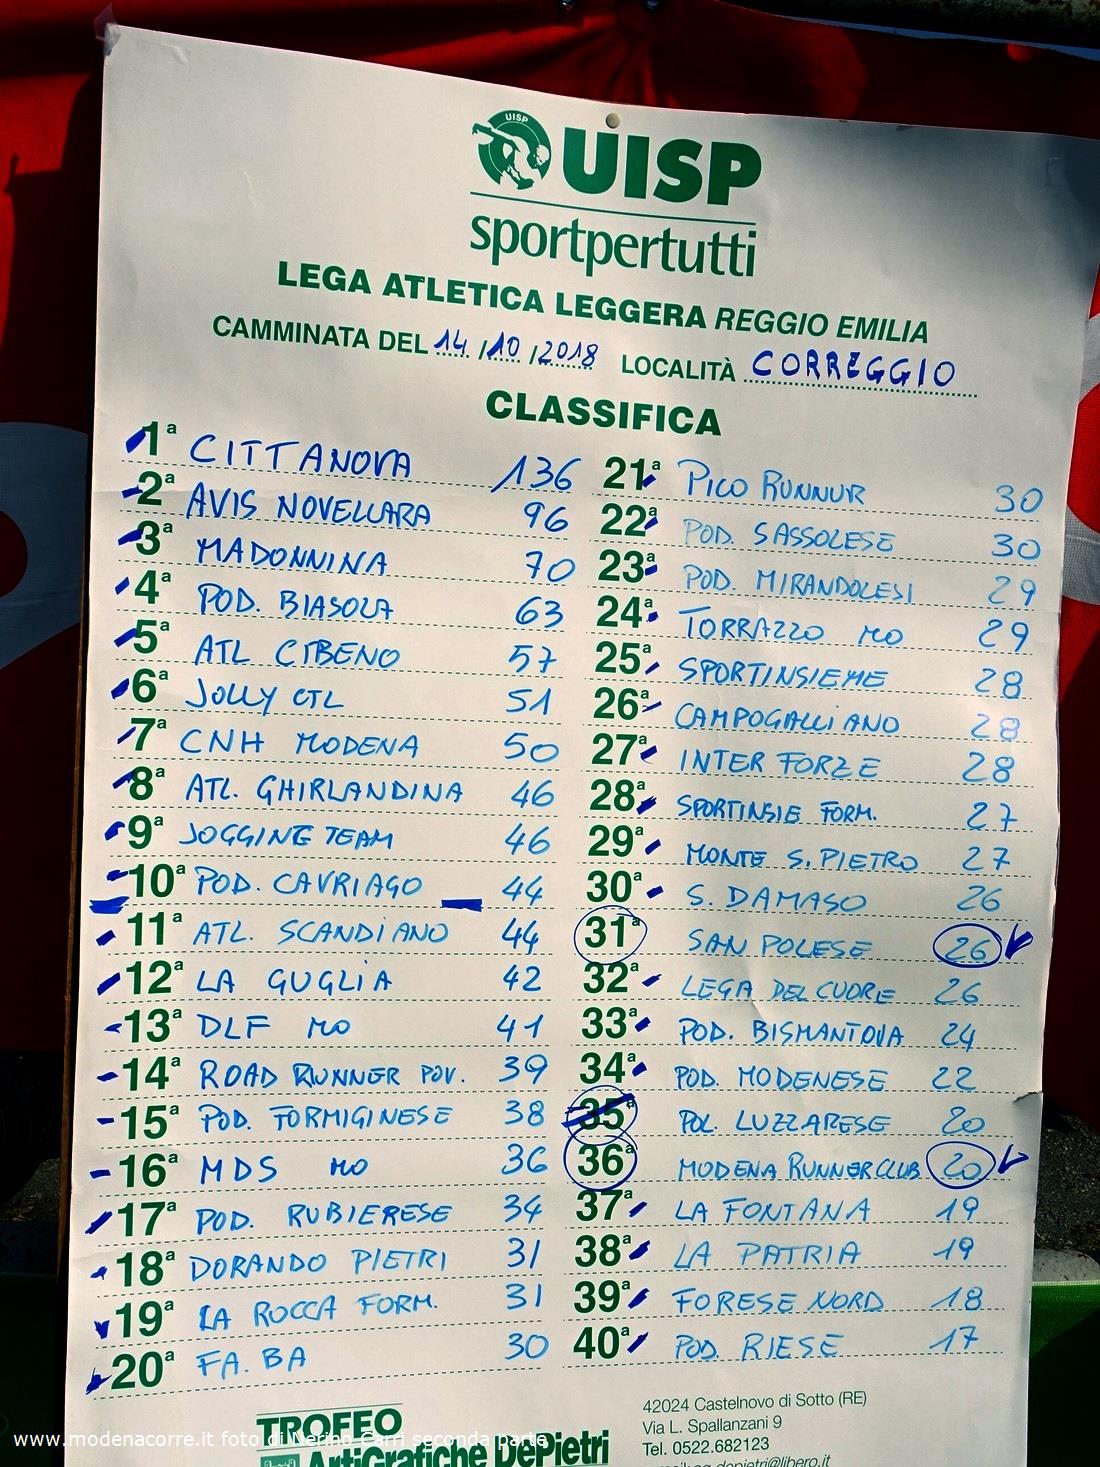 UISP
UISP
sportpertutti
LEGA ATLETICA LEGGERA REGGIO EMILIA
CAMMINATA DEL 14/10/2018 LOCALITÀ CORREGGIO
CLASSIFICA
1ª CITTANOVA 136
2ª AVIS NOVELLARA 96
3ª MADONNINA 70
4ª POD. BIASOLA 63
5ª ATL CIBENO 57
6ª JOLLY CTL 51
7ª CNH MODENA 50
8ª ATL. GHIRLANDINA 46
9ª JOGGING TEAM 46
10ª POD. CAVRIAGO 44
11ª ATL. SCANDIANO 44
12ª LA GUGLIA 42
13ª DLF MO 41
14ª ROAD RUNNER POV. 39
15ª POD. FORMIGINESE 38
16ª MDS MO 36
17ª POD. RUBIERESE 34
18ª DORANDO PIETRI 31
19ª LA ROCCA FORM. 31
20ª FA.BA 30
21ª PICO RUNNUR 30
22ª POD. SASSOLESE 30
23ª POD. MIRANDOLESI 29
24ª TORRAZZO MO 29
25ª SPORTINSIEME 28
26ª CAMPOGALLIANO 28
27ª INTER FORZE 28
28ª SPORTINSIE FORM. 27
29ª MONTE S. PIETRO 27
30ª S. DAMASO 26
31ª SAN POLESE 26
32ª LEGA DEL CUORE 26
33ª POD. BISMANTOVA 24
34ª POD. MODENESE 22
35ª POL. LUZZARESE 20
36ª MODENA RUNNER CLUB 20
37ª LA FONTANA 19
38ª LA PATRIA 19
39ª FORESE NORD 18
40ª POD. RIESE 17
TROFEO
ArtiGrafiche DePietri
42024 Castelnovo di Sotto (RE)
Via L. Spallanzani 9
Tel. 0522.682123
depietri@libero.it
www.modenacorre.it foto di Nerino Carri seconda parte